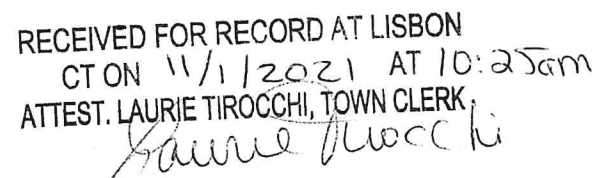 RECEIVED FOR RECORD AT LISBON
CT ON 11/1/2021 AT 10:25am
ATTEST. LAURIE TIROCCHI, TOWN CLERK
Laurie Tirocchi